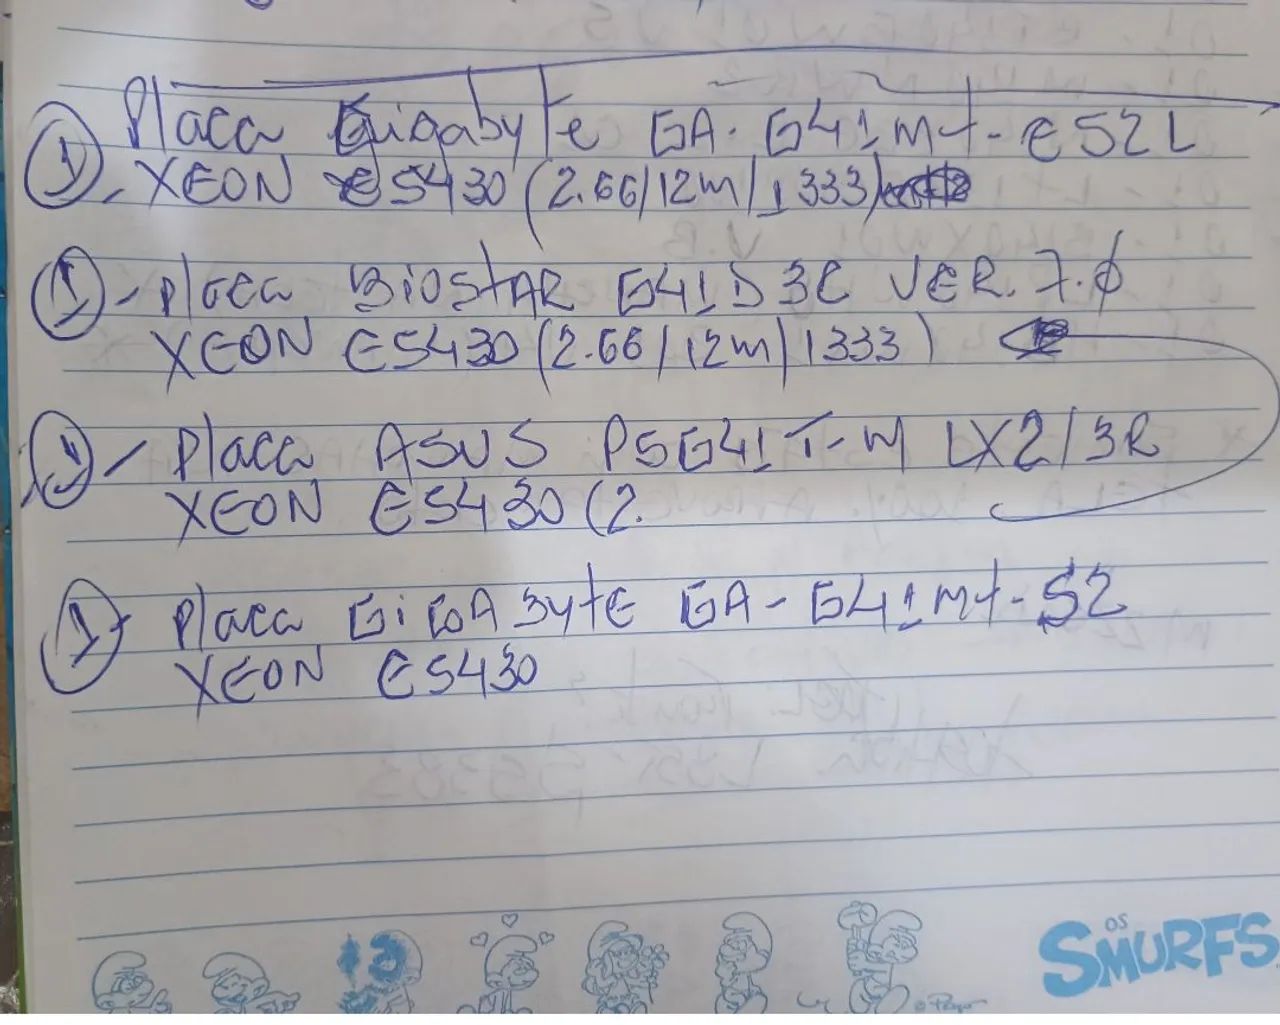 1 Placa Gigabyte GA-G41Mt-ES2L
XEON E5430 (2.66/12m/1333)
1 - Placa BIOStAR G41D3C VER. 7.0
XEON E5430 (2.66/12m/1333)
1 - Placa ASUS P5G41T-M LX2/BR
XEON E5430 (2.
1 - Placa GiGABytE GA-G41Mt-S2
XEON E5430
OS
SMURFS
© Peyo